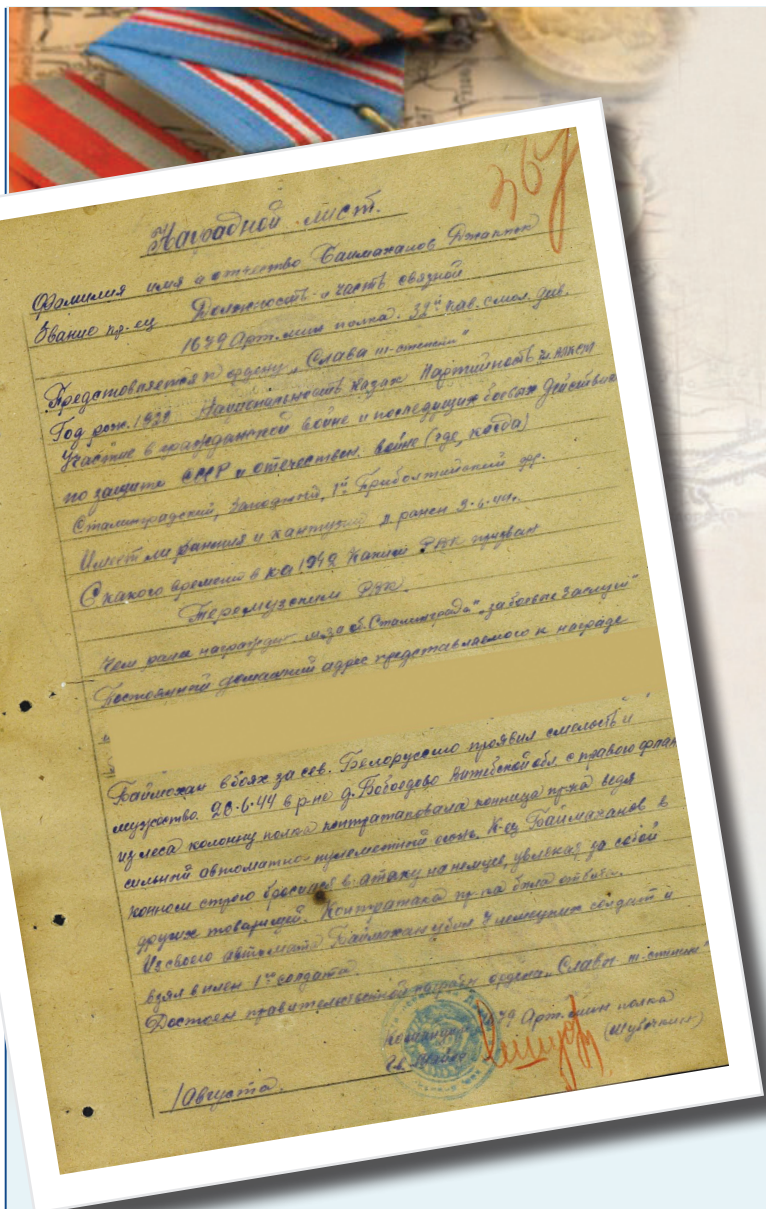 367
Наградной лист.
Фамилия имя и отчество Баймаханов
Звание кр-ец Должность и часть связной
1679 Арт. мин полка. 32й кав. смол. див.
Представляется к ордену „Слава III-степени"
Год рож. Национальность Казах Партийность
Участие в гражданской войне и последующих боевых действиях
по защите СССР и отечествен. войне (где, когда)
Сталинградский, Западный, 1й Прибалтийский фр.
Имеет ли ранения и контузии л. ранен 3.4.44г.
С какого времени в ка Каким РВК призван
РВК.
Чем ранее награжден м. за об. Сталинграда" „за боевые заслуги"
Постоянный домашний адрес представляемого к награде
Баймохан в боях за сев. Белоруссию проявил смелость и
мужество. 28.6.44 в р-не д. Витебской обл. с правого флан
из леса колонну полка контратаковала конница пр-ка ведя
сильный автоматно-пулеметный огонь. К-ец Баймаханов в
конном строю бросился в атаку на немцев, увлекая за собой
других товарищей. Контратака пр-ка была отбита.
Из своего автомата Баймахан убил немецких солдат и
взял в плен 1го солдата.
Достоин правительственной награды орденом „Славы III-степени"
командир 1679 Арт. мин полка
Гв.
1 Августа.